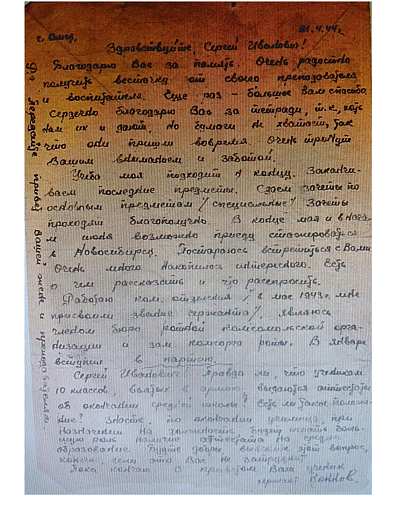 г. Омск, 21.4.44г.
Здравствуйте, Сергей Иванович!
Благодарю Вас за память. Очень радостно
получить весточку от своего преподавателя
и воспитателя. Еще раз - большое Вам спасибо.
Сердечно благодарю Вас за тетради, т.к., хоть
нам их и дают, но бумаги не хватает, так
что они пришли вовремя. Очень тронут
Вашим вниманием и заботой.
Учеба моя подходит к концу. Заканчи-
ваем последние предметы. Сдаем зачеты по
основным предметам /специальные/ Зачеты
проходят благополучно. В конце мая и в нача-
ле июня возможно приеду стажироваться
в Новосибирск. Постараюсь встретиться с Вами
Очень много накопилось интересного. Есть
о чем рассказать и что расспросить.
Работаю ком. отделения /в мае 1943г. мне
присвоили звание сержанта/, являюсь
членом бюро ротной комсомольской орга-
низации и зам. комсорга роты. В январе
вступил в партию.
Сергей Иванович! Правда ли, что ученикам
10 классов, взятых в армию, выдаются аттестаты
об окончании средней школы? Есть ли такое положе-
ние? Знаете, по окончании училища, при
назначении на должность будет играть боль-
шую роль наличие аттестата на средн.
образование. Будьте добры выясните этот вопрос,
конечно, если это Вас не затруднит.
Пока кончаю. С приветом Ваш ученик
сержант
Передайте привет Вашей жене и преподавателям.